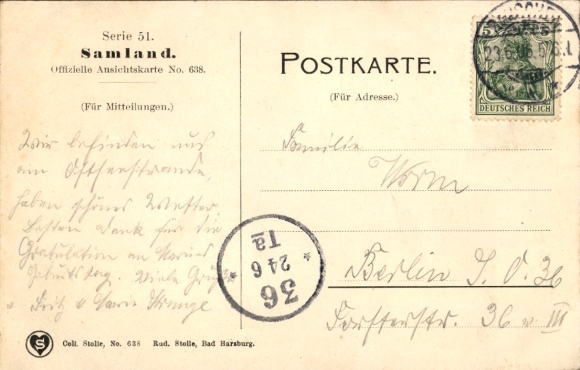 Serie 51.
Samland.
Offizielle Ansichtskarte No. 638.
(Für Mitteilungen.)
Wir befinden uns
am Ostseestrande,
haben schönes Wetter.
Besten Dank für die
Gratulation an
Geburtstag. Viele Grüße
Fritz u
POSTKARTE.
(Für Adresse.)
5
DEUTSCHES REICH
Familie
Worm
Berlin S. O. 36
Forsterstr. 36 v. III
36
24 6
Ta
S
Coll. Stolle, No. 638 Rud. Stolle, Bad Harzburg.